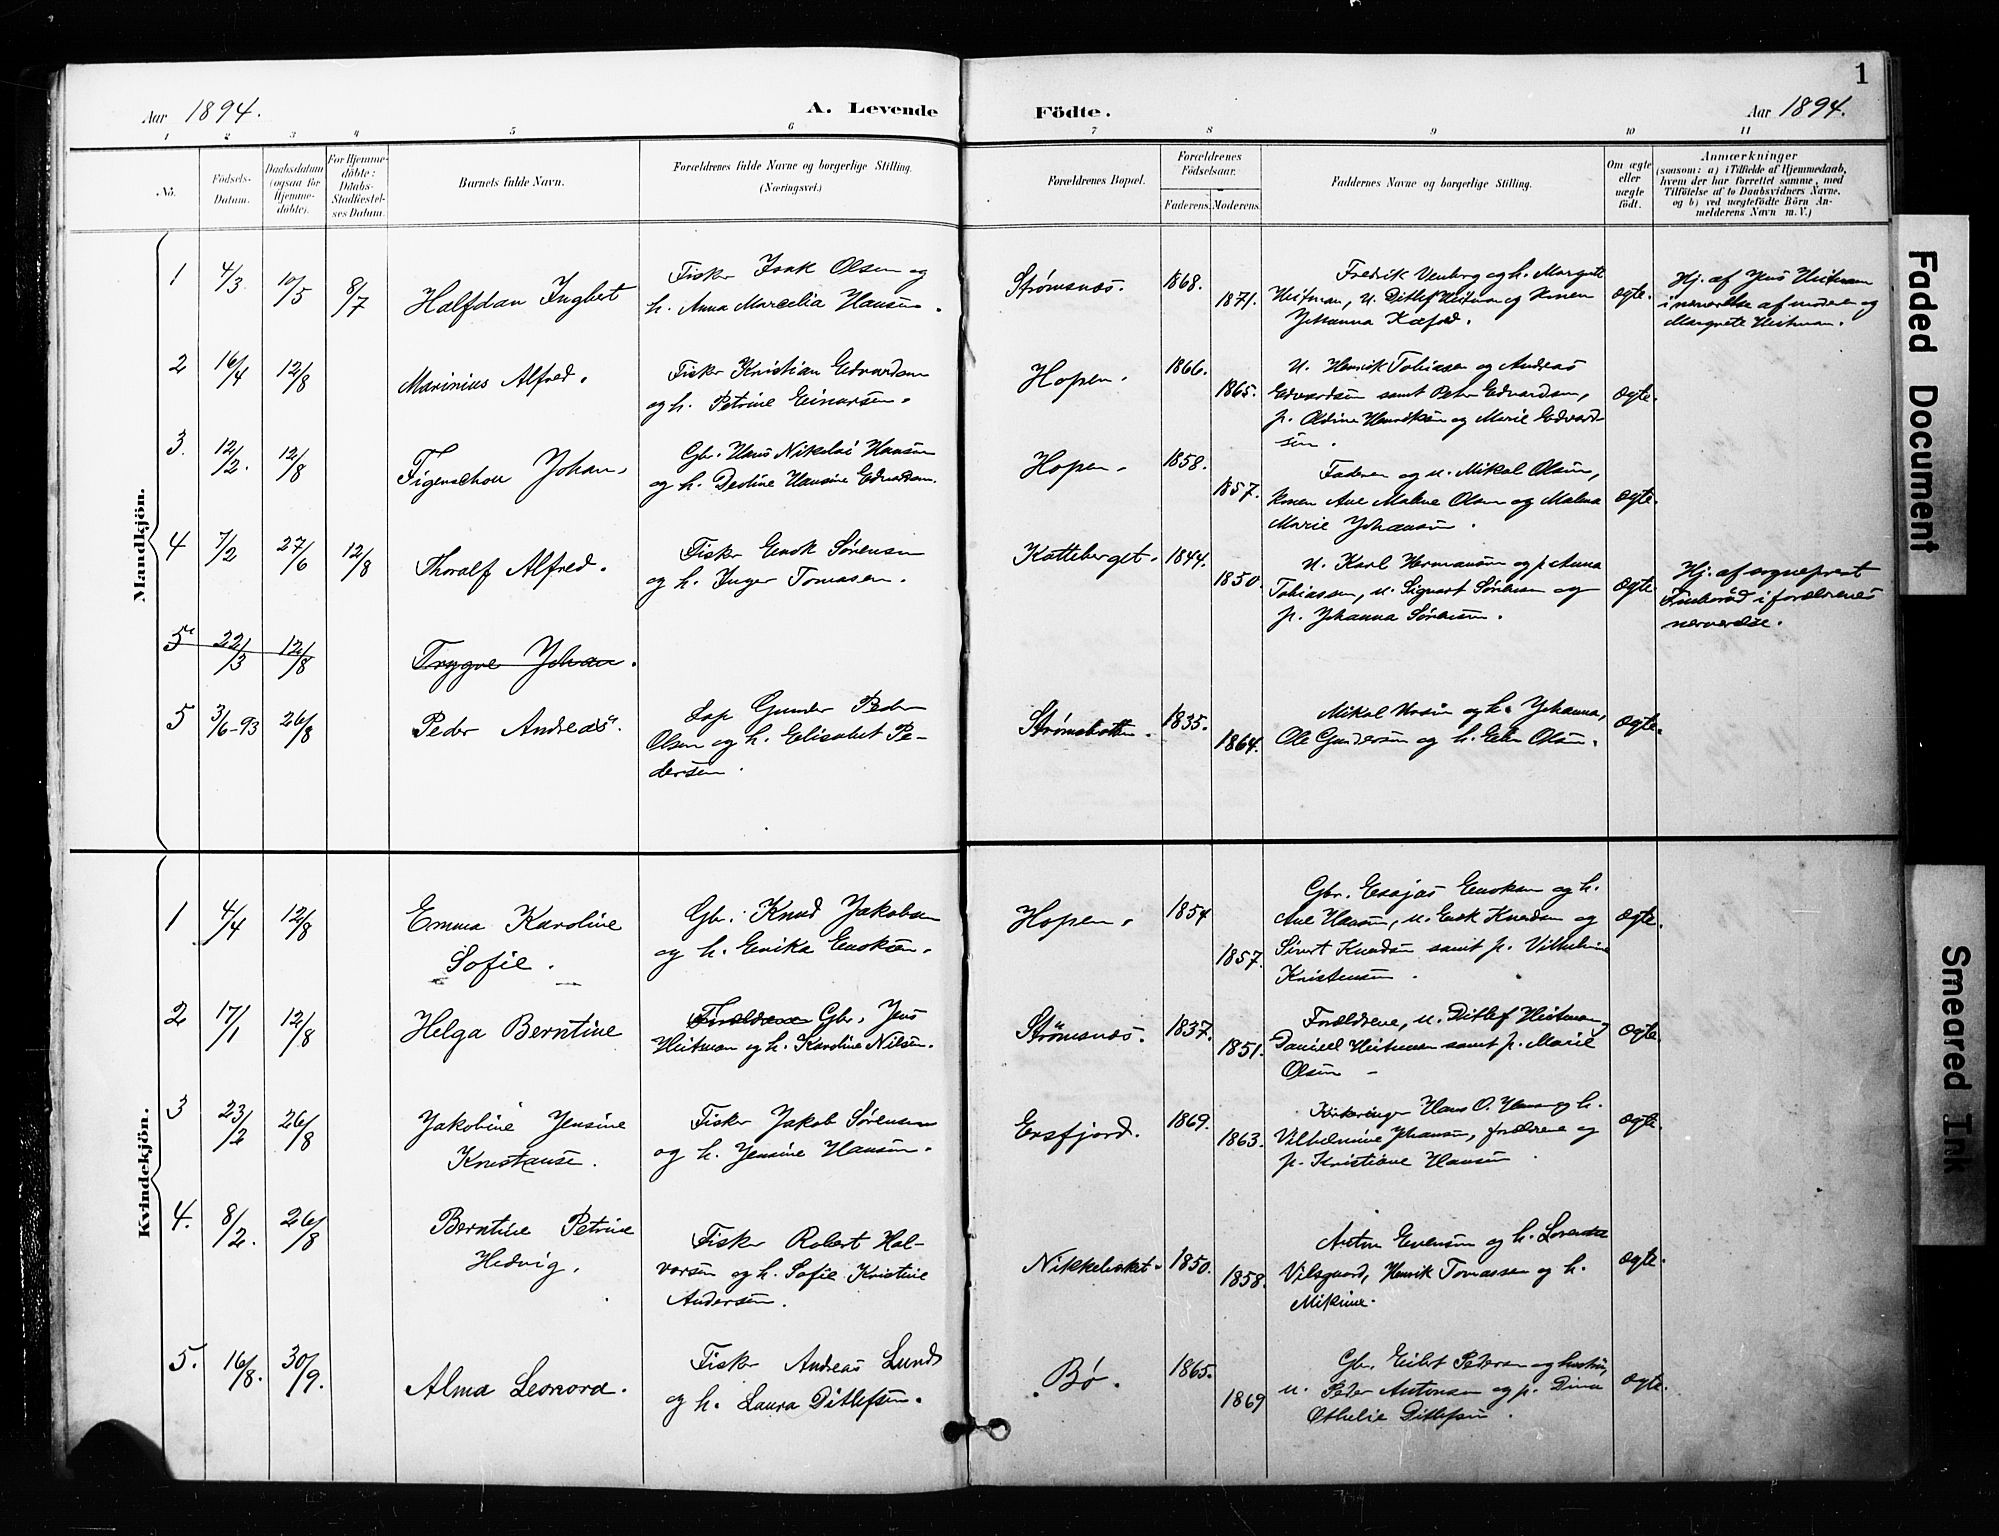 1
Aar 1894.
A. Levende
Födte.
Aar 1894.
1 2 3 4 5 6 7 8 9 10 11
No.
Födsels-
Datum.
Daabsdatum
(ogsaa for
Hjemme-
döbte).
For Hjemme-
döbte:
Daabs-
Stadfæstel-
ses Datum.
Barnets fulde Navn.
Forældrenes fulde Navne og borgerlige Stilling.
(Næringsvei.)
Forældrenes Bopæl.
Forældrenes
Födselsaar.
Faderens. Moderens.
Faddernes Navne og borgerlige Stilling.
Om ægte
eller
uægte
födt.
Anmærkninger
(saasom: a) i Tilfælde af Hjemmedaab,
hvem der har forrettet samme, med
Tilföielse af to Daabsvidners Navne,
og b) ved uægtefödte Börn An-
melderens Navn m. V.)
Mandkjön.
1 4/3 10/5 8/7
Halfdan Ingbert
Fisker Isak Olsen og
h. Anna Marcelia Hansen.
Strømsnæs. 1868.
1871.
Fredrik og h. Margrete
Heitman, u. Ditlef Heitman og konen
Johanna
ægte.
Hj. af Jens Heitman
i nærværelse af moderen og
Margrete Heitman.
2 16/4 12/8
Marinius Alfred.
Fisker Kristian Edvardsen
og h. Petrine Einarsen.
Hopen. 1866.
1865.
U. Henrik Tobiassen og Andreas
Edvardsen samt Peter Edvardsen,
p. Henriksen og Marie Edvard-
sen.
ægte.
3. 12/2. 12/8
Figenschou Johan.
Gbr. Hans Nikolai Hansen
og h. Hansine Edvardsen.
Hopen. 1858.
1857.
Faderen og u. Mikal Olsen,
konen Ane Malene Olsen og
Marie Johansen.
ægte.
4 7/2 27/6 12/8
Thoralf Alfred.
Fisker Enok Sørensen
og h. Inger Tomasen.
Katteberget. 1844.
1850.
U. Karl Hermansen og p. Anna
Tobiassen, u. Sigvart Sørensen og
p. Johanna Sørensen.
ægte.
Hj. af sogneprest
i forældrenes
nærværelse.
5 22/3 12/8
Trygve Johan.
5 3/6-93 26/8
Peder Andreas.
Lap Gunder Peder
Olsen og h. Elisabet Pe-
dersen.
Strømsbotten. 1835.
1864.
Mikal og h. Johanna,
Ole Gundersen og h. Elen Olsen.
ægte.
Kvindekjön.
1 4/4 12/8
Emma Karoline
Sofie.
Gbr. Knud Jakobsen
og h. Erika Enoksen.
Hopen. 1854
1857.
Gbr. Esajas Enoksen og h.
Ane Hansen, u. Enok Knudsen og
Sivert Knudsen samt p. Vilhelmine
Kristensen.
ægte.
2 17/1 12/8
Helga Berntine
Forældrene Gbr. Jens
Heitman og h. Karoline Nilsen.
Strømsnæs. 1837.
1851.
Forældrene, u. Ditlef Heitman,
Daniel Heitman samt p. Marie
Olsen
ægte.
3 23/2 26/8
Jakobine Jensine
Konstanse.
Fisker Jakob Sørensen
og h. Jensine Hansen.
Ersfjord. 1869.
1863.
Kirkesanger Hans O. og h.
Vilhelmine Johansen, forældrene og
p. Kristiane Hansen
ægte.
4. 8/2. 26/8
Berntine Petrine
Hedvig.
Fisker Robert Hal-
vorsen og h. Sofie Kristine
Andersen.
1850.
1858.
Anton Evensen og h.
Henrik Tomassen og h.
Mikine.
ægte.
5. 16/8. 30/9.
Alma Leonora.
Fisker Andreas Lund
og h. Laura Ditlefsen.
Bø. 1865.
1869
Gbr. Eilert Pedersen og hustru,
u. Peder Antonsen og p. Dina
Othelie Ditlefsen.
ægte.
Faded Document
Smeared Ink